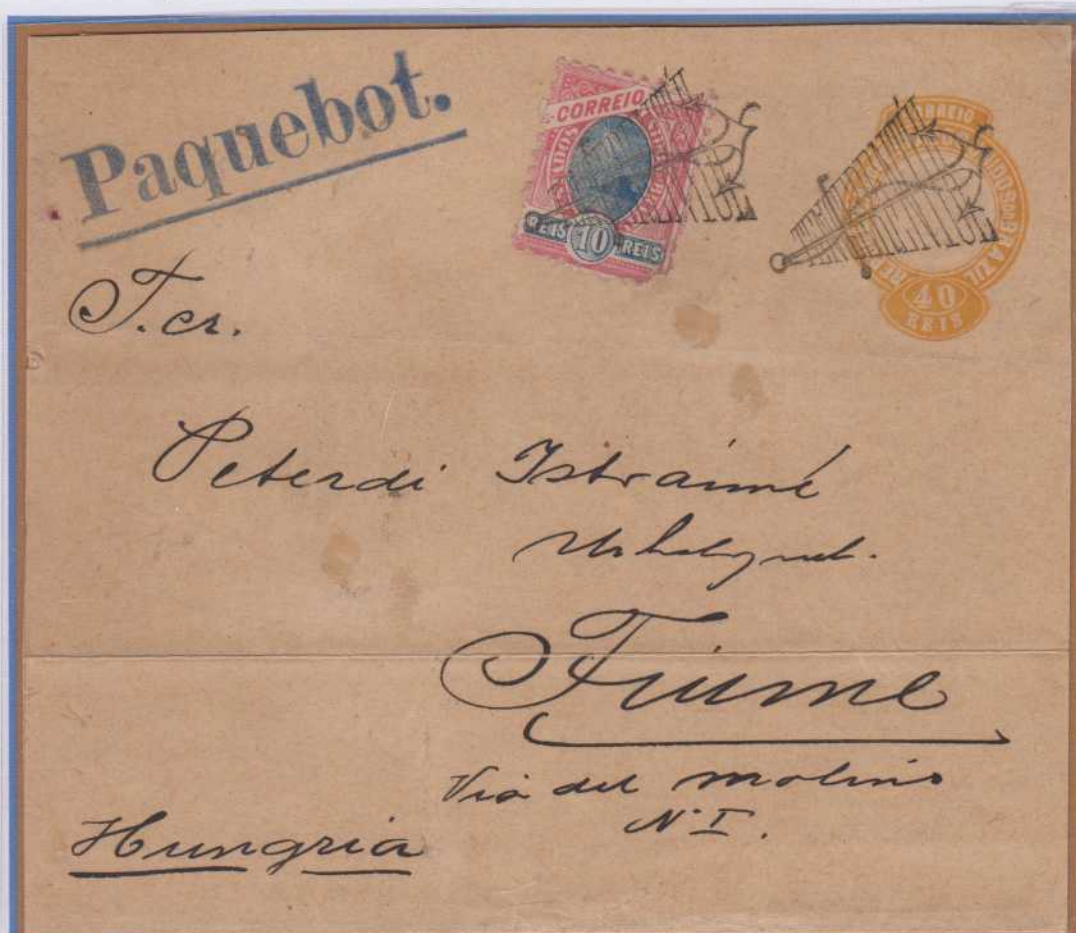 Paquebot.
CORREIO
REIS 10 REIS
CORREIO
BRAZIL
40
REIS
T. cr.
Peterdi Istvánné
Fiume
Via del molino
N. I.
Hungria